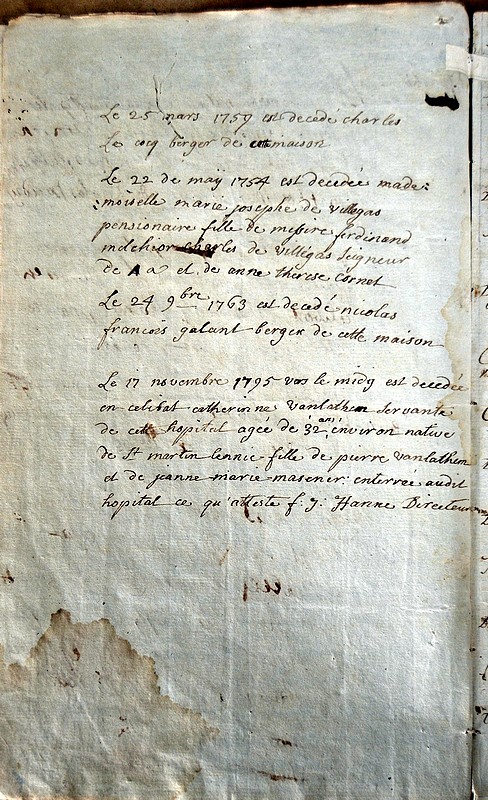 Le 25 mars 1759 est decedé charles
Le cocq berger de cet maison
Le 22 de may 1754 est decedée made:
:moiselle marie josephe de villegas
pensionaire fille de messire ferdinand
melchior charles de villégas seigneur
de A a et de anne therese cornet
Le 24 9bre 1763 est decedé nicolas
francois galant berger de cette maison
Le 17 novembre 1795 vers le midy est decedée
en celibat catherinne vanlathem servante
de cette hopital agée de 32 ans environ native
de St martin lennic fille de pierre vanlathem
et de jeanne marie masener: enterrée audit
hopital ce qu'atteste f. j. Hanne Directeur